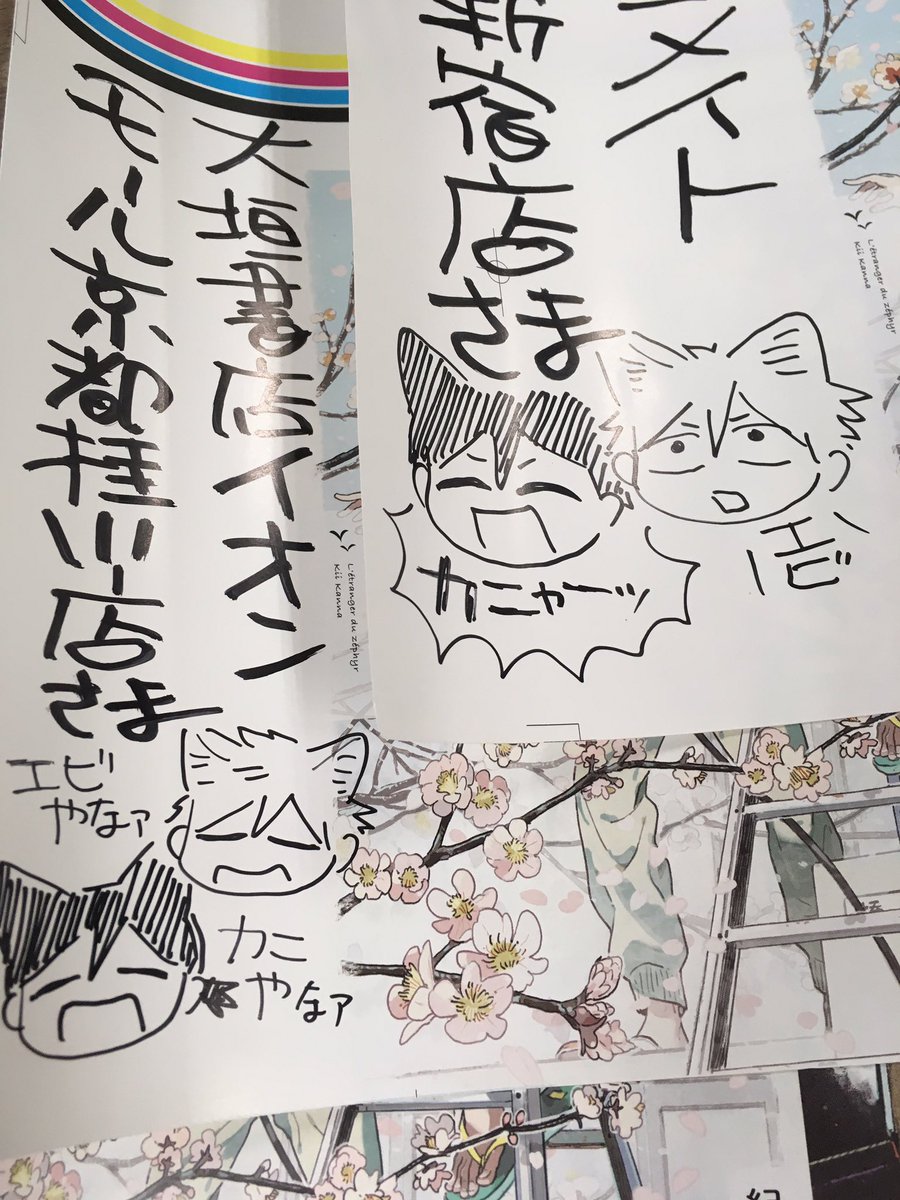 メイト
新宿店さま
エビ
カニャーッ
L'étranger du zéphyr
Kii Kanna
大垣書店イオン
モール京都桂川店さま
エビ
やなァ
カニ
やなァ
L'étranger du zéphyr
Kii Kanna
紀